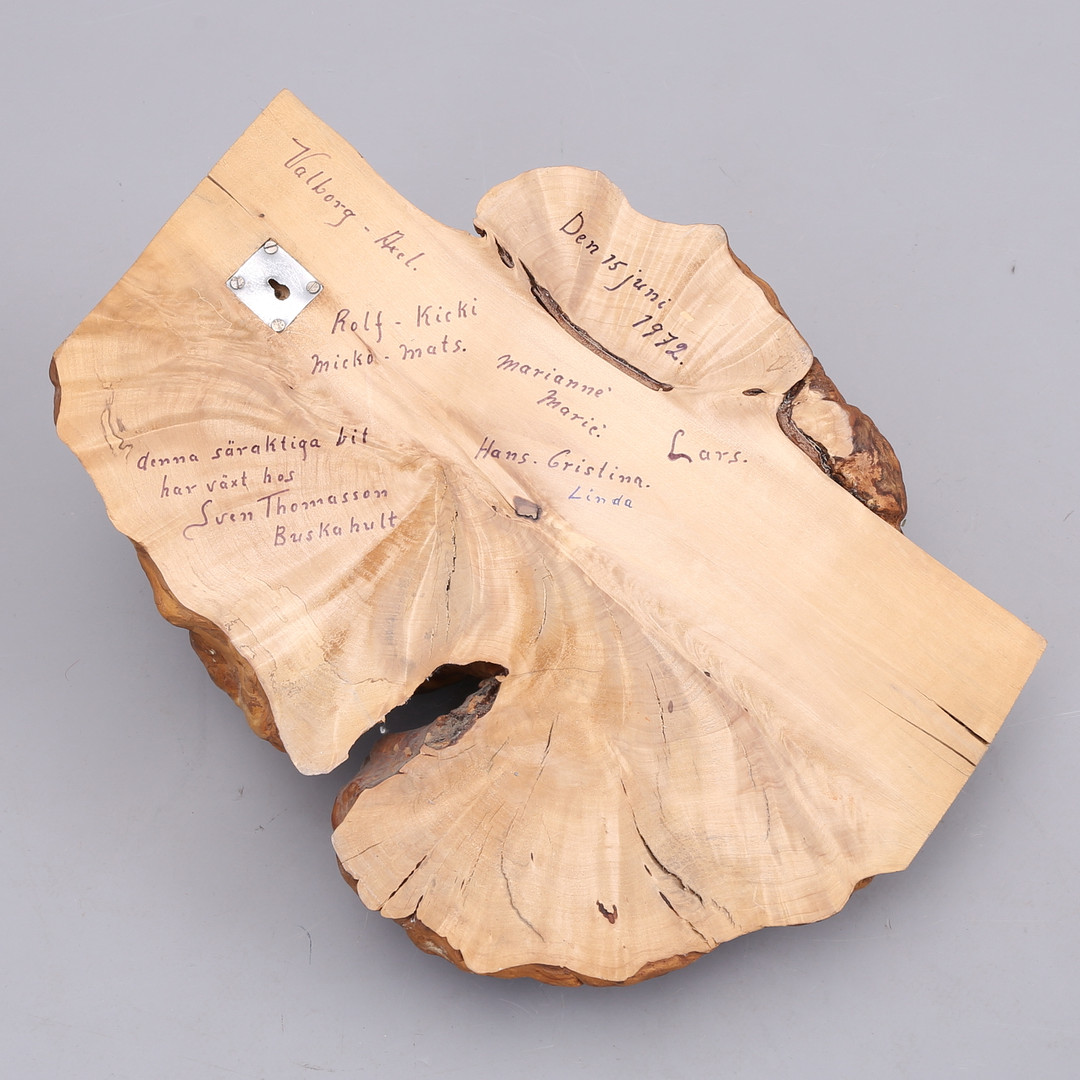 Valborg - Axel.
Den 15 juni
1972.
Rolf - Kicki
Micko - Mats.
Marianne
Marie.
Hans - Cristina.
Linda
Lars.
denna säraktiga bit
har växt hos
Sven Thomasson
Buskahult